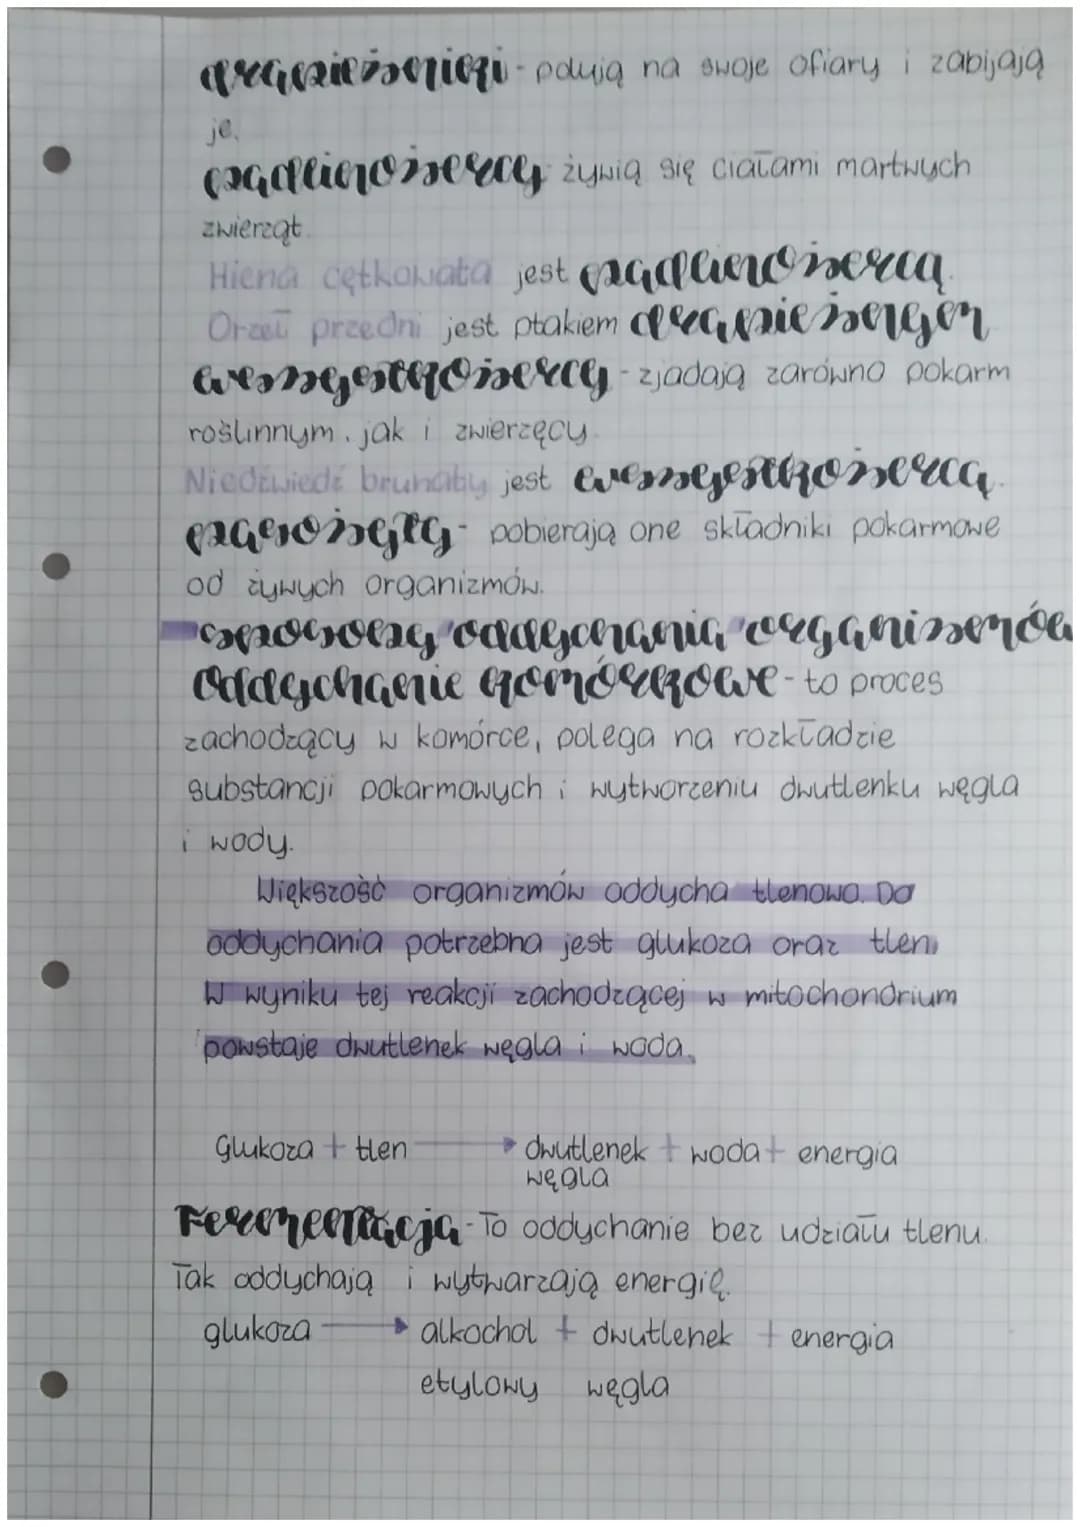 drapieżniki - polują na swoje ofiary i zabijają
je.
padlinożercy żywią się ciałami martwych
zwierząt.
Hiena cętkowata jest padlinożercą.
Orzeł przedni jest ptakiem drapieżnym
wszystkożercy - zjadają zarówno pokarm
roślinnym, jak i zwierzęcy.
Niedźwiedź brunaty jest wszystkożercą.
pasożyty - pobierają one składniki pokarmowe
od żywych organizmów.
sposoby oddychania organizmów
Oddychanie komórkowe - to proces
zachodzący w komórce, polega na rozkładzie
substancji pokarmowych i wytworzeniu dwutlenku węgla
i wody.
Większość organizmów oddycha tlenowo. Do
oddychania potrzebna jest glukoza oraz tlen.
W wyniku tej reakcji zachodzącej w mitochondrium
powstaje dwutlenek węgla i woda.
Glukoza + tlen → dwutlenek + woda + energia
węgla
Fermentacja - To oddychanie bez udziału tlenu.
Tak oddychają i wytwarzają energię.
glukoza → alkochol + dwutlenek + energia
etylowy węgla